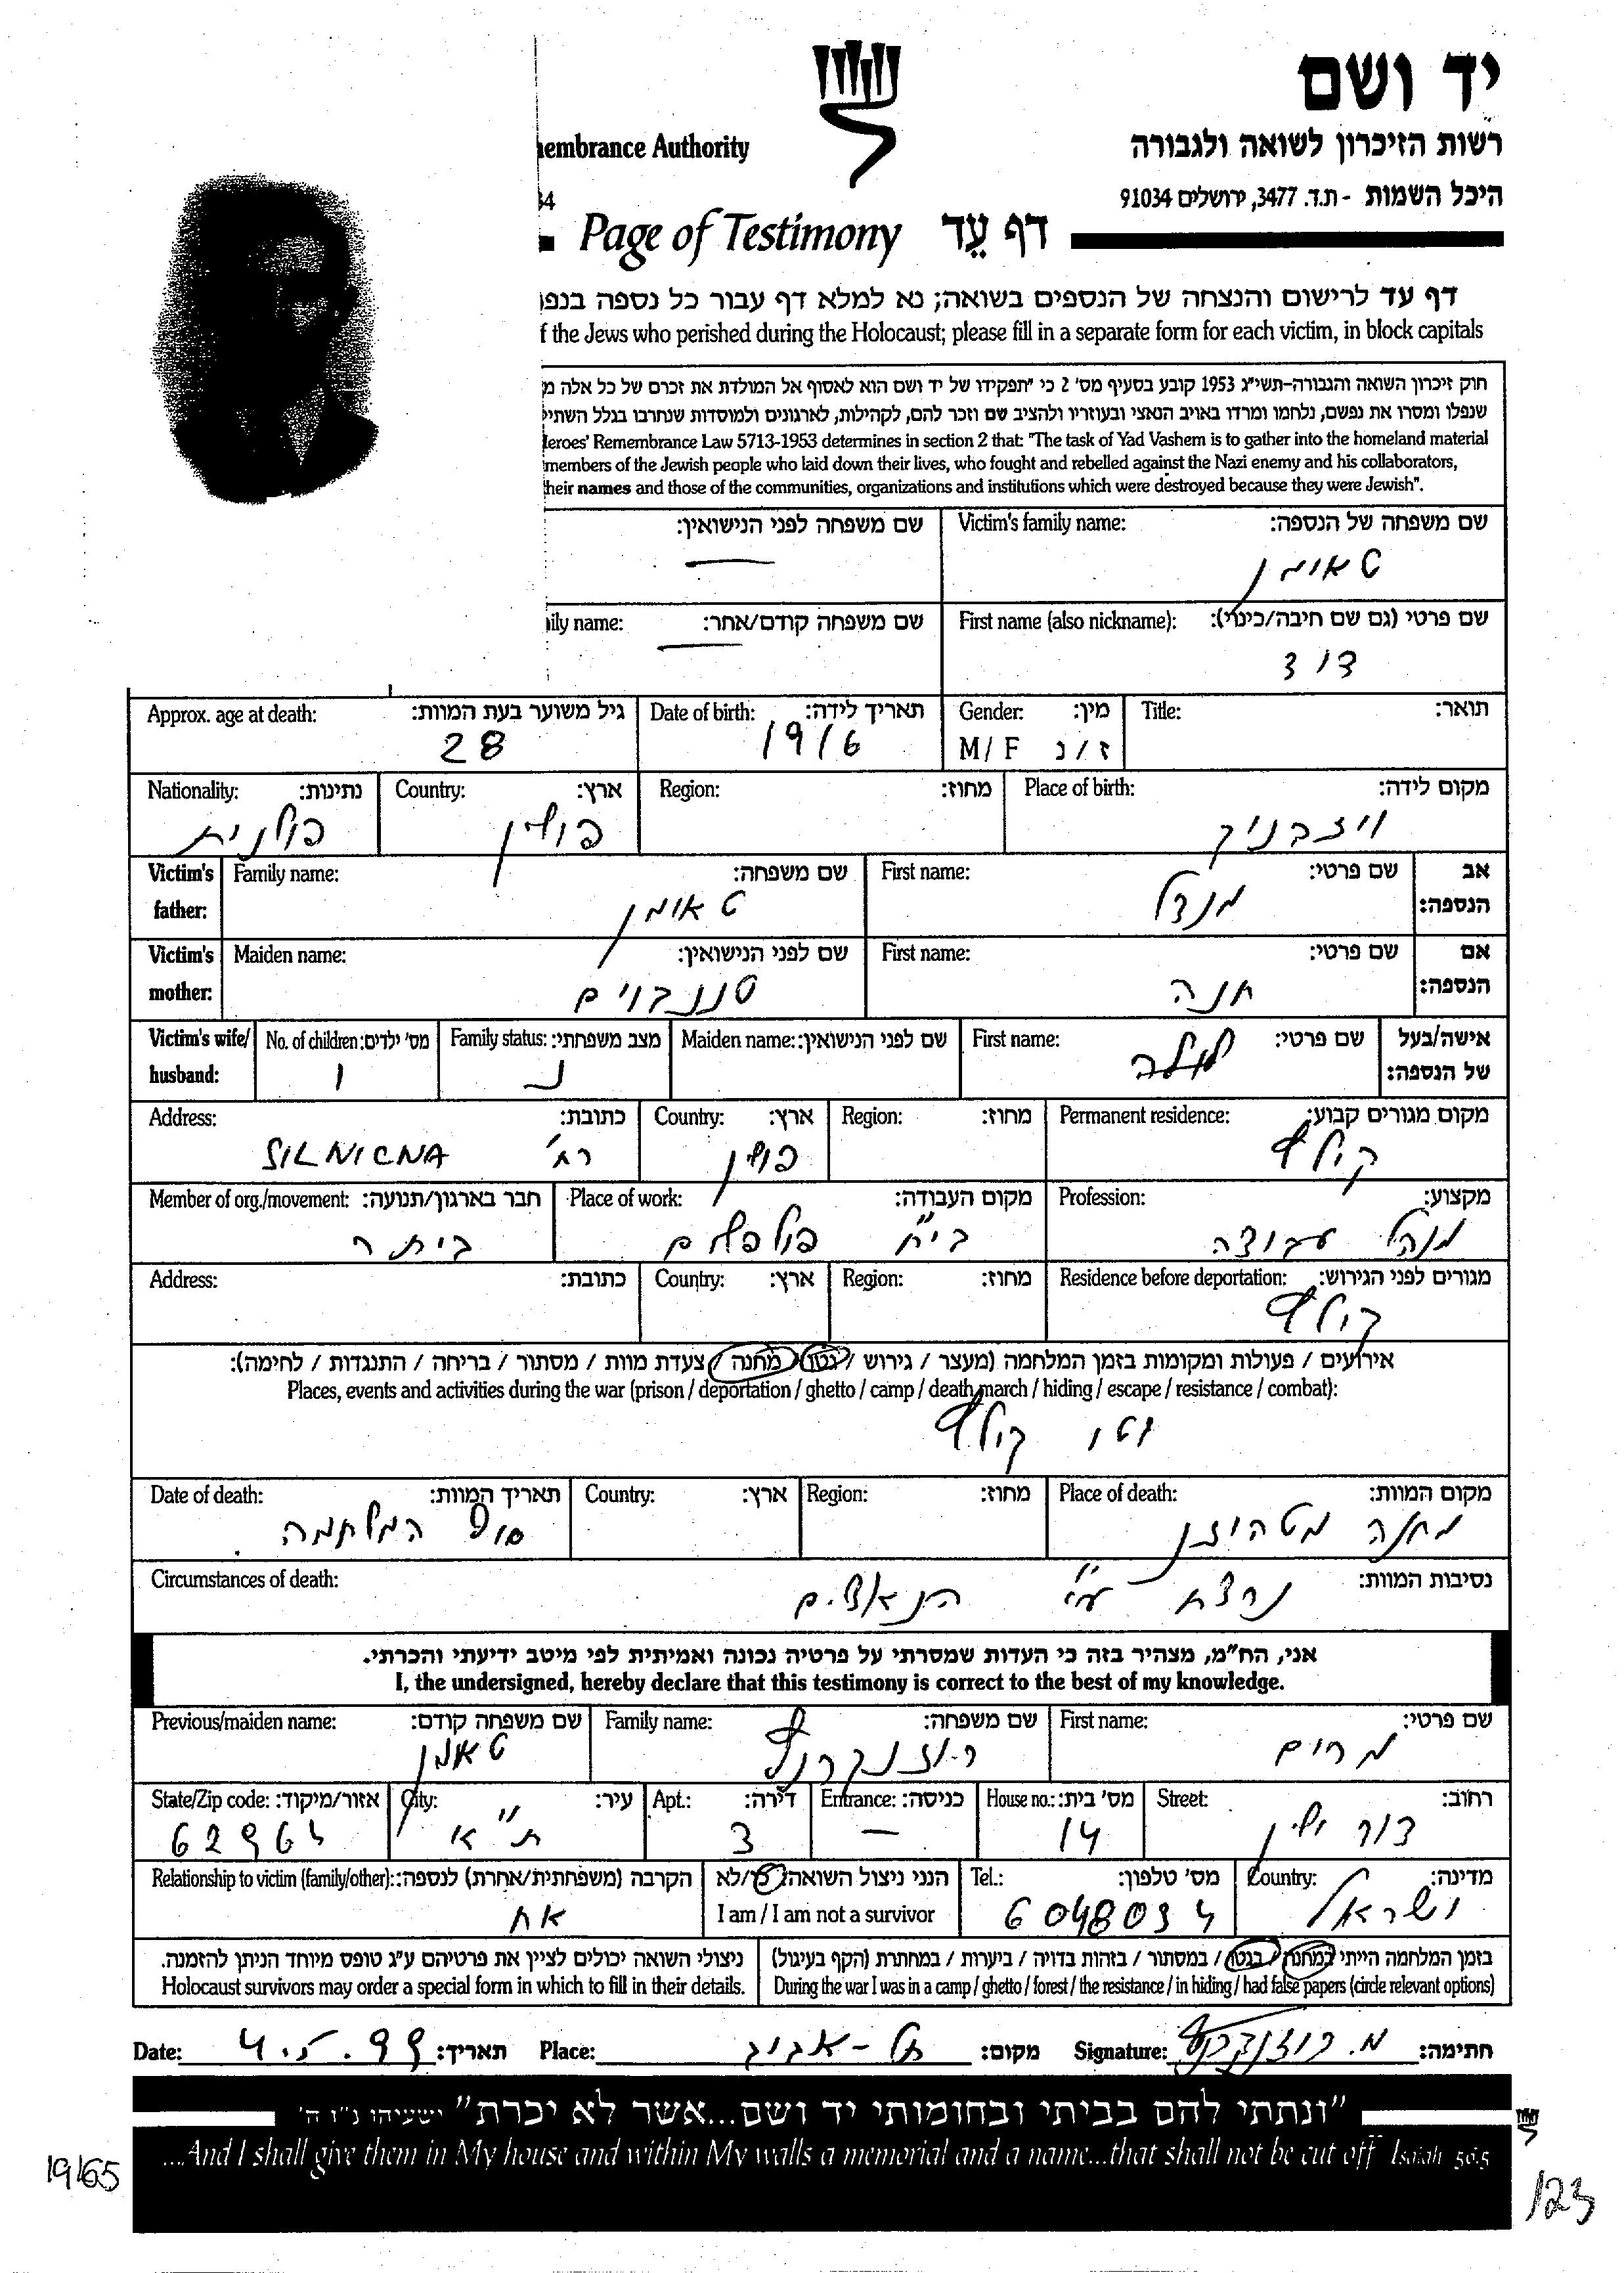 יד ושם
רשות הזיכרון לשואה ולגבורה
embrance Authority
היכל השמות - ת.ד. 3477, ירושלים 91034
34
Page of Testimony דף עד
דף עד לרישום והנצחה של הנספים בשואה; נא למלא דף עבור כל נספה בנפ
f the Jews who perished during the Holocaust; please fill in a separate form for each victim, in block capitals
חוק זיכרון השואה והגבורה-תשי"ג 1953 קובע בסעיף מס' 2 כי "תפקידו של יד ושם הוא לאסוף אל המולדת את זכרם של כל אלה מ
שנפלו ומסרו את נפשם, נלחמו ומרדו באויב הנאצי ובעוזריו ולהציב שם וזכר להם, לקהילות, לארגונים ולמוסדות שנחרבו בגלל השתיי
eroes' Remembrance Law 5713-1953 determines in section 2 that: "The task of Yad Vashem is to gather into the homeland material
members of the Jewish people who laid down their lives, who fought and rebelled against the Nazi enemy and his collaborators,
heir names and those of the communities, organizations and institutions which were destroyed because they were Jewish".
שם משפחה של הנספה: Victim's family name: שם משפחה לפני הנישואין:
טאומן —
שם פרטי (גם שם חיבה/כינוי): First name (also nickname): שם משפחה קודם/אחר: ily name:
דוד —
תואר: Title: מין: Gender: תאריך לידה: Date of birth: גיל משוער בעת המוות: Approx. age at death:
ז / נ M / F 1916 28
מקום לידה: Place of birth: מחוז: Region: ארץ: Country: נתינות: Nationality:
ויזבניק פולין פולנית
אב הנספה: שם פרטי: First name: שם משפחה: Family name: Victim's father:
מנדל טאומן
אם הנספה: שם פרטי: First name: שם לפני הנישואין: Maiden name: Victim's mother:
חנה טננבוים
אישה/בעל של הנספה: שם פרטי: First name: שם לפני הנישואין: Maiden name: מצב משפחתי: Family status: מס' ילדים: No. of children: Victim's wife/ husband:
נ 1
מקום מגורים קבוע: Permanent residence: מחוז: Region: ארץ: Country: כתובת: Address:
פולין רח' SILNICNA
מקצוע: Profession: מקום העבודה: Place of work: חבר בארגון/תנועה: Member of org./movement:
מנהל עבודה ביח' בית"ר
מגורים לפני הגירוש: Residence before deportation: מחוז: Region: ארץ: Country: כתובת: Address:
אירועים / פעולות ומקומות בזמן המלחמה (מעצר / גירוש / גטו / מחנה / צעדת מוות / מסתור / בריחה / התנגדות / לחימה):
Places, events and activities during the war (prison / deportation / ghetto / camp / death march / hiding / escape / resistance / combat):
גטו
מקום המוות: Place of death: מחוז: Region: ארץ: Country: תאריך המוות: Date of death:
מחנה מטהוזן סוף המלחמה
נסיבות המוות: Circumstances of death:
נרצח ע"י הנאצים
אני, הח"מ, מצהיר בזה כי העדות שמסרתי על פרטיה נכונה ואמיתית לפי מיטב ידיעתי והכרתי.
I, the undersigned, hereby declare that this testimony is correct to the best of my knowledge.
שם פרטי: First name: שם משפחה: Family name: שם משפחה קודם: Previous/maiden name:
מרים טאומן
רחוב: Street: מס' בית: House no.: כניסה: Entrance: דירה: Apt.: עיר: City: אזור/מיקוד: State/Zip code:
14 — 3 ת"א
מדינה: Country: מס' טלפון: Tel.: הנני ניצול השואה: כן/לא הקרבה (משפחתית/אחרת) לנספה: Relationship to victim (family/other):
I am / I am not a survivor
ישראל אח
בזמן המלחמה הייתי במחנה / בגטו / במסתור / בזהות בדויה / ביערות / במחתרת (הקף בעיגול) ניצולי השואה יכולים לציין את פרטיהם ע"ג טופס מיוחד הניתן להזמנה.
During the war I was in a camp / ghetto / forest / the resistance / in hiding / had false papers (circle relevant options) Holocaust survivors may order a special form in which to fill in their details.
חתימה: Signature: מקום: תל-אביב Place: תאריך: 4.5.99 Date:
"ונתתי להם בביתי ובחומותי יד ושם...אשר לא יכרת" ישעיהו נ"ו ה'
...And I shall give them in My house and within My walls a memorial and a name...that shall not be cut off Isaiah 56:5
19/65